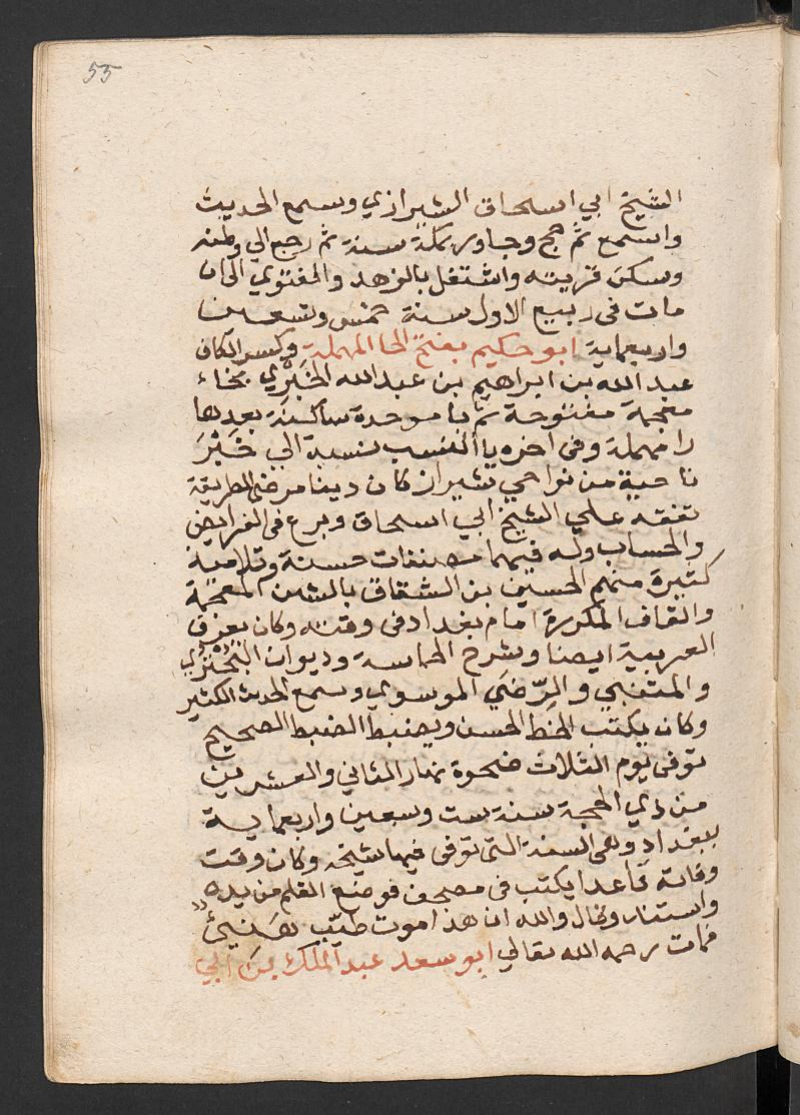 55
الشيخ ابي اسحاق الشيرازي وسمع الحديث
واسمع ثم حج وجاور بمكة سنة ثم رجع الي وطنه
وسكن قريته واشتغل بالزهد والفتوي الي ان
مات في ربيع الاول سنة خمس وتسعين
واربعماية ابو حكيم بفتح الحا المهملة وكسر الكاف
عبد الله بن ابراهيم بن عبد الله الخَبْري بخاء
معجمة مفتوحة ثم با موحدة ساكنة بعدها
را مهملة وفي اخره يا النسب نسبة الي خَبْرَ
ناحية من نواحي شيراز كان دينا مرضي الطريقة
تفقه علي الشيخ ابي اسحاق وبرع في الفرايض
والحساب وله فيهما مصنفات حسنة وتلامية
كثيرة منهم الحسين بن الشقاق بالشين المعجمة
والقاف المكررة امام بغداد في وقته وكان يعرف
العربية ايضا وشرح الحماسة وديوان البُحْتُري
والمتنبي والرّضي الموسوي وسمع الحديث الكثير
وكان يكتب الخط الحسن ويضبط الضبط الصحيح
توفي يوم الثلاث ضحوة نهار الثاني والعشرين
من ذي الحجة سنة ست وسبعين واربعماية
ببغداد وهي السنة التي توفي فيها شيخه وكان وقت
وفاته قاعدا يكتب في مصحف فوضع القلم من يده
واستنار وقال والله ان هذا موت طيّب هَنيئ
فمات رحمه الله تعالي ابو سعد عبد الملك بن ابي